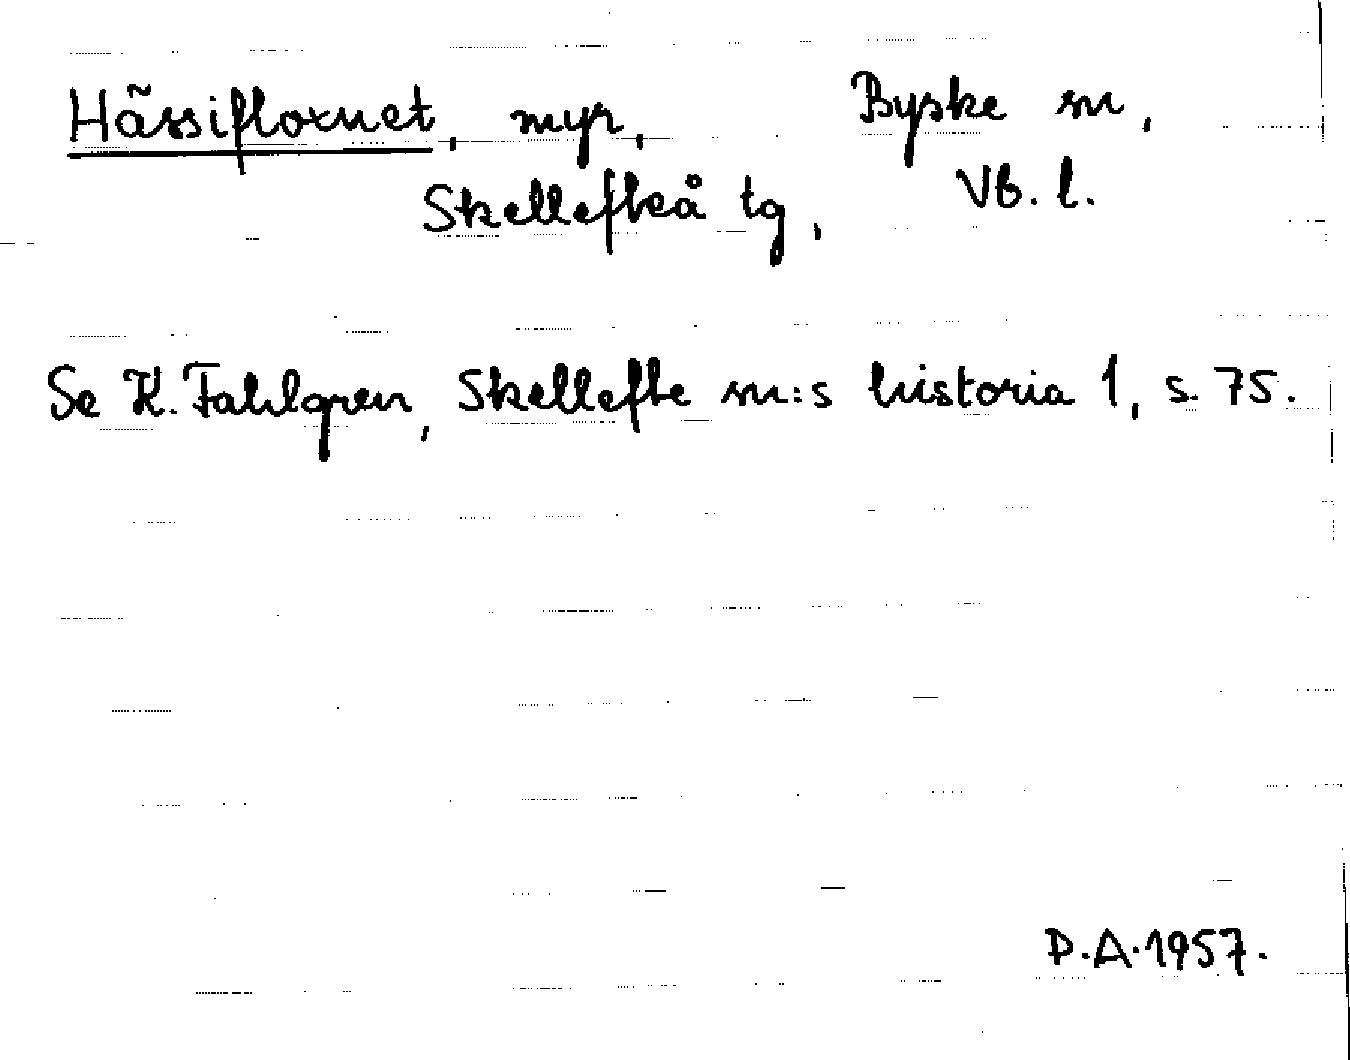 Hässifloxnet, myr, Byske sn,
Skellefteå tg, Vb. l.
Se K. Fahlgren, Skellefte sn:s historia 1, s. 75.
P.A. 1957.